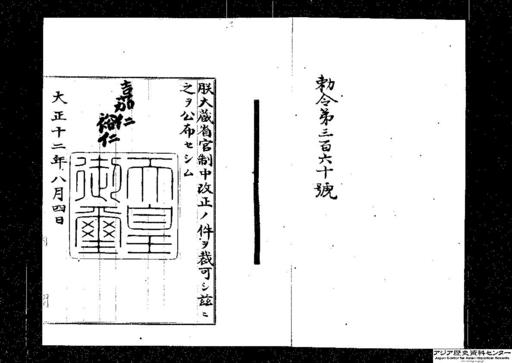 勅令第三百六十號
朕大蔵省官制中改正ノ件ヲ裁可シ茲ニ
之ヲ公布セシム
嘉仁
裕仁
天皇
御璽
大正十二年八月四日
アジア歴史資料センター
Japan Center for Asian Historical Records